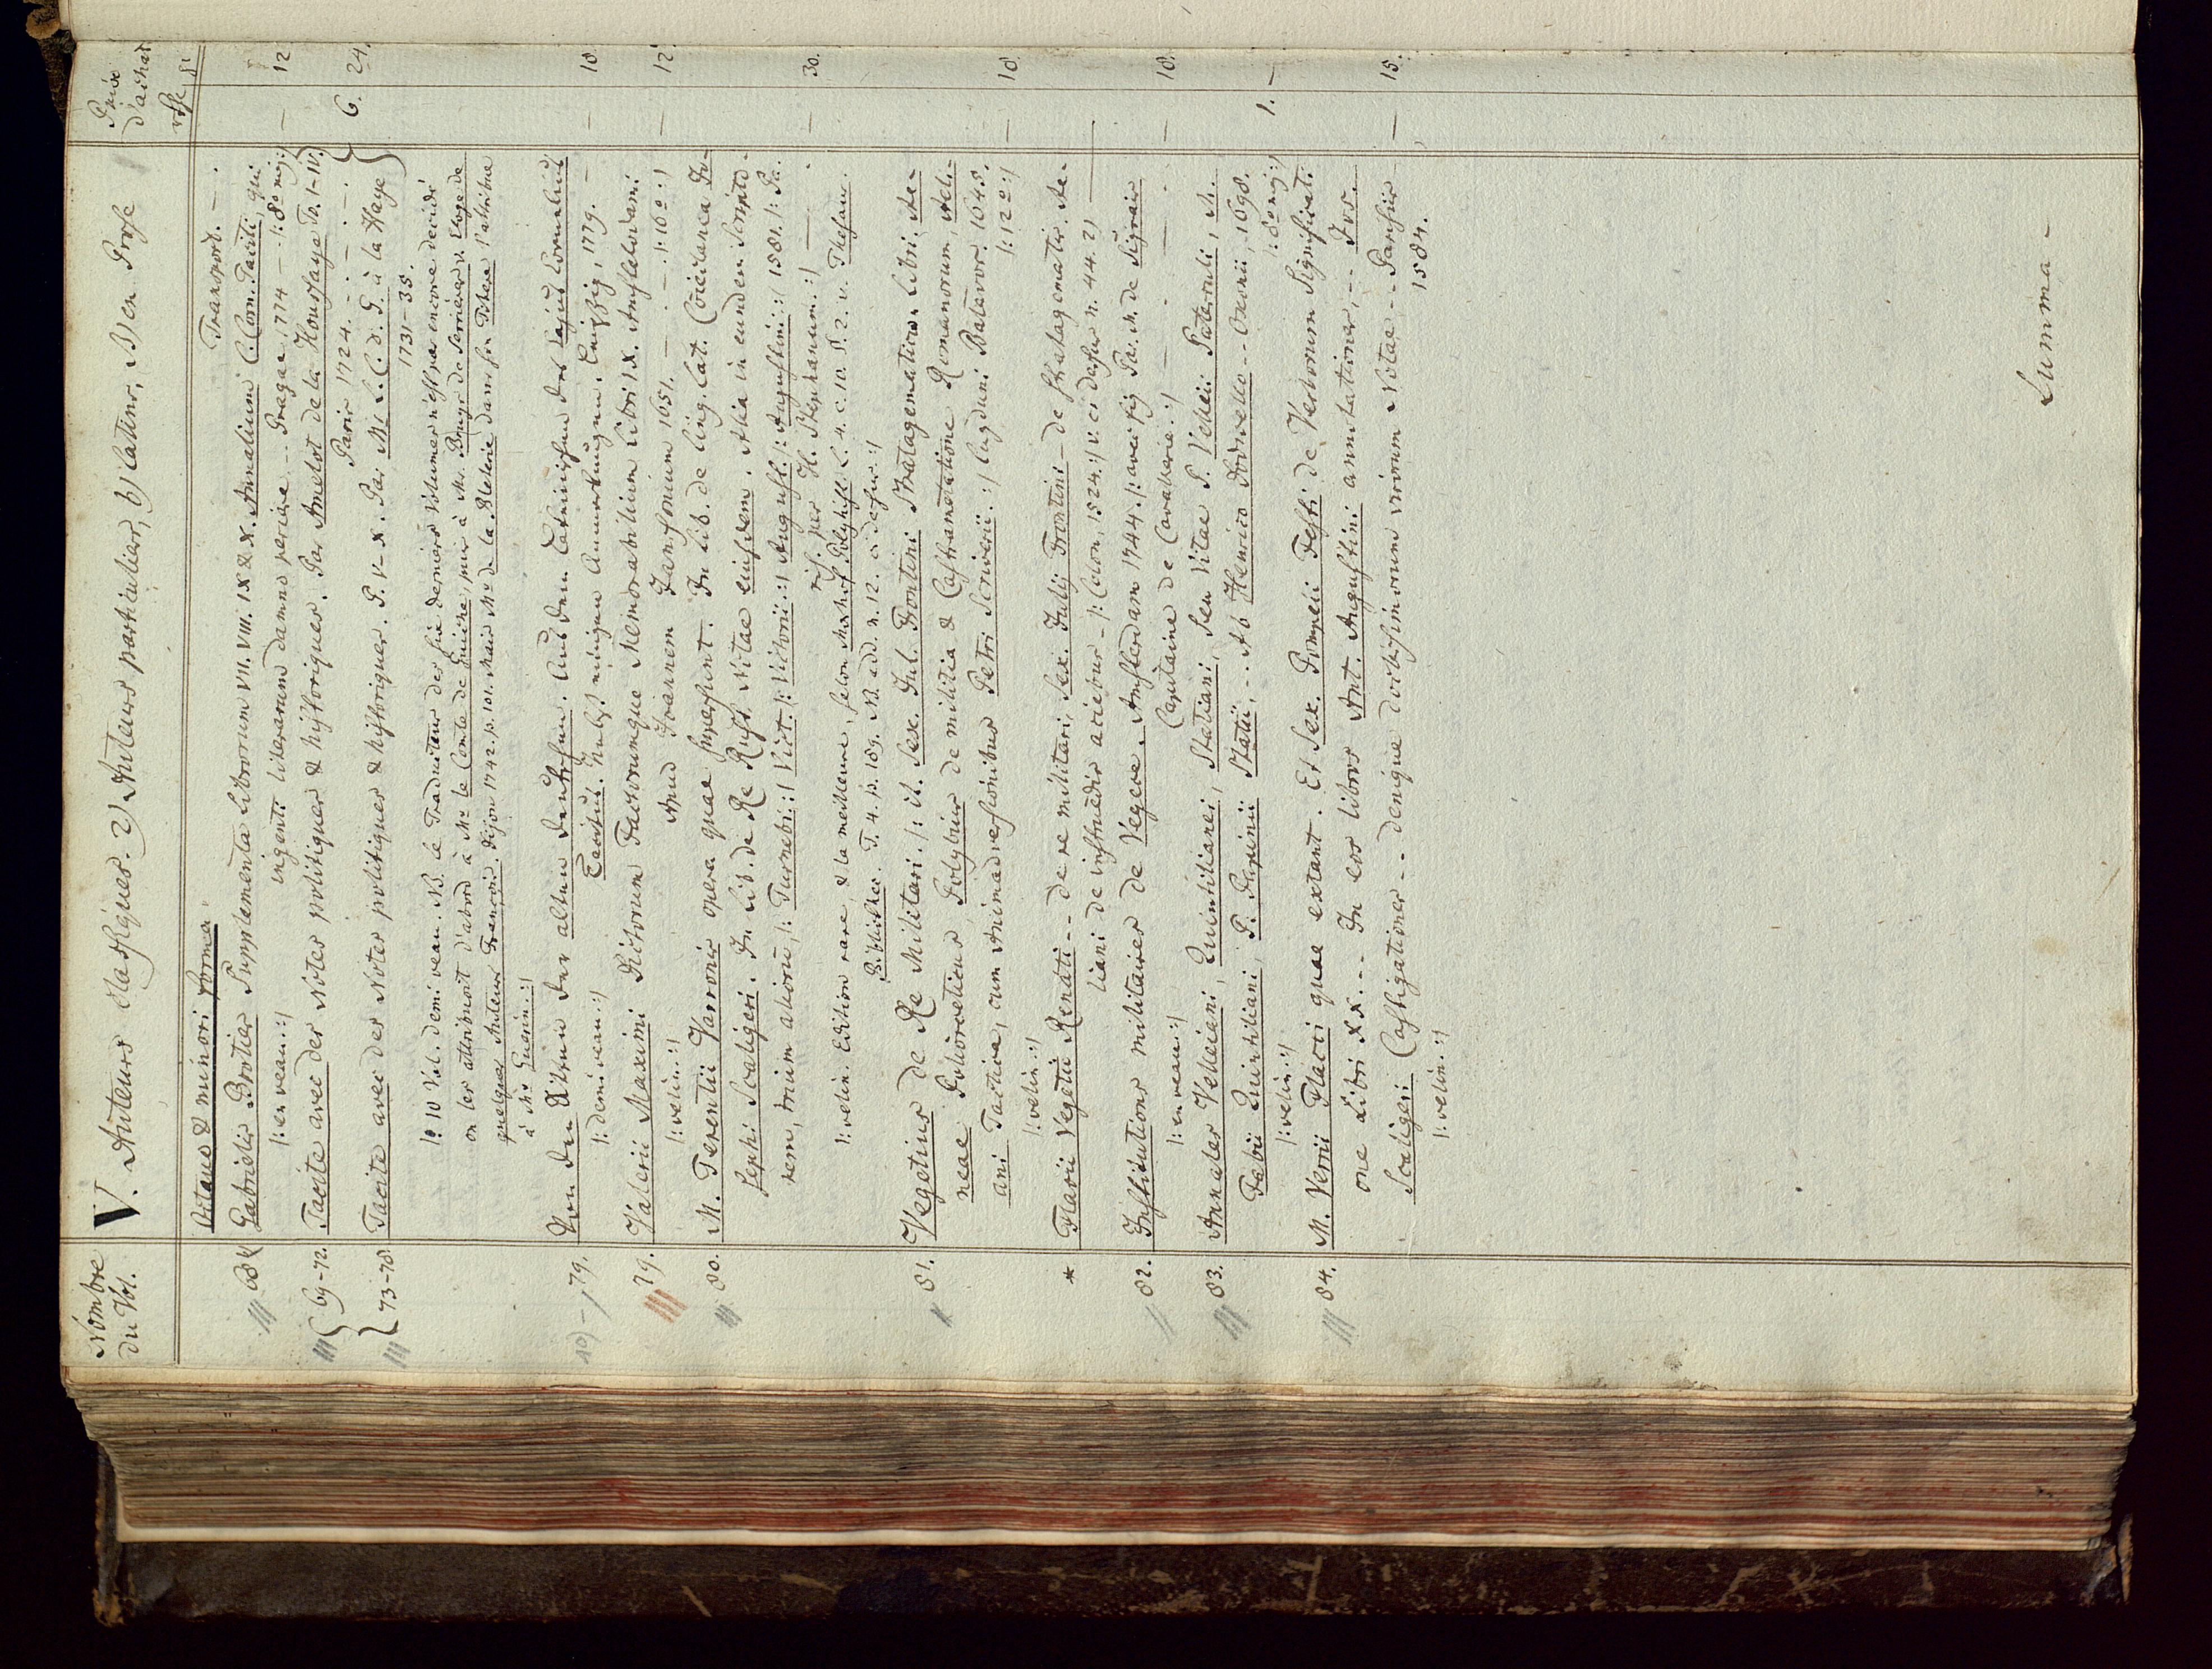 Nombre du Vol.
V. Auteurs classiques. 2) Auteurs particuliers, b) latins, B) en Prose
Prix d'achat
Octavo & minori forma
Transport. — .
68 Gabrielis Brotier Supplementa Librorum VII. VIII. IX & X. Annalium C. Corn. Taciti, qui
ingenti literarum damno periere .. Pragae, 774 — |: 8º maj: | — 12
|: en veau :|
69-72. Tacite avec des Notes politiques & historiques. Par Amelot de la Houssaye Th. I-IV.
Paris 1724. 6. 24.
73-78 Tacite avec des Notes politiques & historiques. P. V-X. Par Mr L. C. d. G. à la Haye
1731-35.
|: 10 Vol. demi veau. NB. le Traducteur des six derniers Volumes n'est pas encore decidé
on les attribuoit d'abord à Mr le Comte de Guiche, puis à M. Bruys de Serrieres v. Eloge de
quelques Auteurs François. Dijon 1742. p. 101. Mais Mr de la Bleterie dans sa Preface l'attribue
à Mr Guerin. :|
79. Von den Sitten der alten Deutschen. Aus dem Lateinischen des Cajus Cornelius
Tacitus. Nebst einigen Anmerkungen. Leipzig, 1779. — — 18.
|: demi veau :|
79. Valerii Maximi Dictorum Factorumque Memorabilium Libri IX. Amstelodami
Apud Joannem Janssonium 1651. — . — . |: 16º :| — 12
|: velin. :|
80. M. Terentii Varronis opera quae supersunt. In Lib. de Ling. Lat. Coniectanea Jo-
sephi Scaligeri. In Lib. de Re Rust. Notae eiusdem. Alia in eundem Scripto-
rem, trium aliorū, |: Turnebi :| Vict. |: Victorii :| August. |: Augustini :| 1581. |: Pa-
ris. per H. Stephanum. :| — . — 30.
|: velin. Edition rare, & la meilleure, selon Morhof Polyhist. L. 4. c. 10. §. 2. v. Thesaur.
Bibliothec. T. 4. p. 189. NB. edd. n. 12. cidessus :|
81. Vegetius de Re Militari. |: it. Sex. Jul. Frontini Stratagematicon Libri, Ae-
neae Poliorceticus, Polybius de militia & Castrametatione Romanorum, Aeli-
ani Tactica, cum Animadversionibus Petri Scriverii :| Lugduni Batavor. 1645.
|: 12º :| — 18
|: velin. :|
* Flavii Vegetii Renati .. de re militari, Sex. Julij Frontini — de stratagematis. Ae-
liani de instruedis aciebus — |: Colon, 1524. :| v. cidessus n. 44. 2)
82. Institutions militaires de Vegece. Amsterdam 1744. |: avec fig Par. M. de Sigrais
Capitaine de Cavallerie. :| — . — — 18.
|: en veau :|
83. Annales Velleiani, Quintilianei, Statiani, Seu Vitae P. Velleii Paterculi, M.
Fabii Quintiliani, P. Papinii Statii, .. Ab Henrico Dodwello .. Oxonii, 1698.
|: 8º maj: | 1. —
|: velin. :|
84. M. Verrii Flacci quae extant. Et Sex. Pompeii Festi de Verborum Significati-
one Libri XX... In eos libros Ant. Augustini annotationes, .. Jos.
Scaligeri Castigationes .. denique doctissimorum virorum Notae .. Parisiis
1584. — 15.
|: velin. :|
Summa —